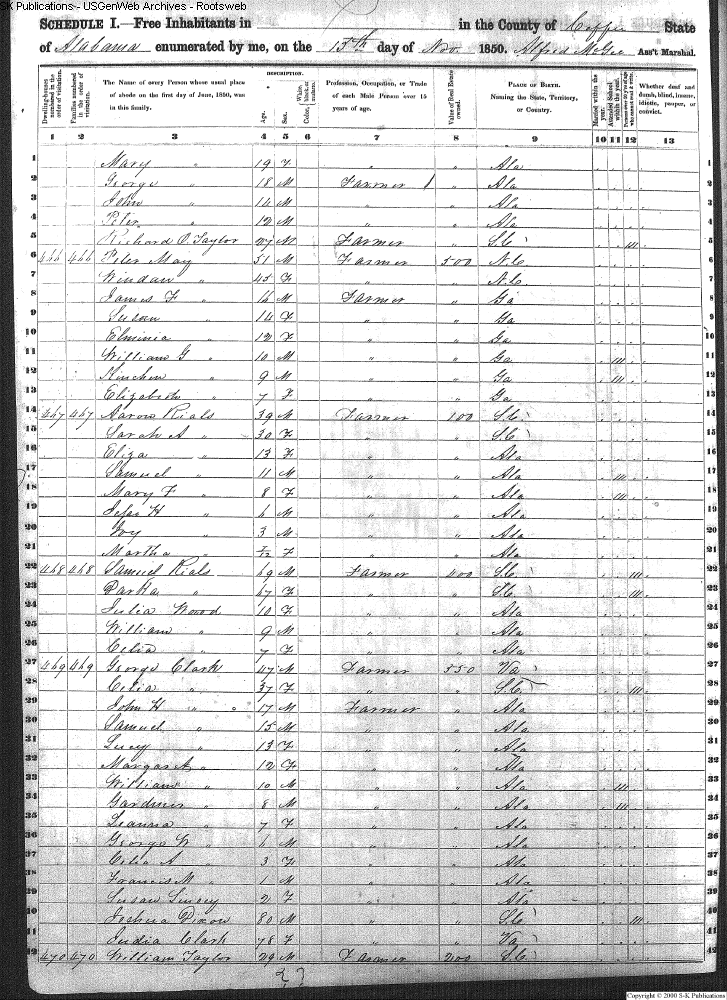 S-K Publications - USGenWeb Archives - Rootsweb
SCHEDULE I.—Free Inhabitants in in the County of Coffee State
of Alabama enumerated by me, on the 15th day of Nov. 1850. Alfred McGee Ass't Marshal.
Dwelling-houses numbered in the order of visitation.
Families numbered in the order of visitation.
The Name of every Person whose usual place of abode on the first day of June, 1850, was in this family.
DESCRIPTION.
Age.
Sex.
White, Color, black, or mulatto.
Profession, Occupation, or Trade of each Male Person over 15 years of age.
Value of Real Estate owned.
PLACE OF BIRTH.
Naming the State, Territory, or Country.
Married within the year.
Attended School within the year.
Whether deaf and dumb, blind, insane, idiotic, pauper, or convict.
1 2 3 4 5 6 7 8 9 10 11 12 13
1 Mary " 19 F " " Ala 1
2 George " 18 M Farmer " Ala 2
3 John " 14 M " " Ala 3
4 Peter " 12 M " " Ala 4
5 Richard O. Taylor 27 M Farmer " S.C 5
6 466 466 Peter May 51 M Farmer 500 N.C 6
7 " 45 F " " N.C 7
8 James F " 16 M Farmer " Ga 8
9 Susan " 14 F " " Ga 9
10 Elminia " 12 F " " Ga 10
11 William G " 10 M " " Ga 11
12 Kinchen " 9 M " " Ga 12
13 Elizabeth " 7 F " " Ga 13
14 467 467 Aaron Rials 39 M Farmer 100 S.C 14
15 Sarah A " 30 F " " S.C 15
16 Eliza " 13 F " " Ala 16
17 Samuel " 11 M " " Ala 17
18 Mary F " 8 F " " Ala 18
19 H " 6 M " " Ala 19
20 " 3 M " " Ala 20
21 Martha " F " " Ala 21
22 468 468 Samuel Rials 69 M Farmer 400 S.C 22
23 " 67 F " " S.C 23
24 Julia Wood 10 F " " Ala 24
25 William " 9 M " " Ala 25
26 Celia " 7 F " " Ala 26
27 469 469 George Clark 47 M Farmer 550 Va 27
28 Celia " 37 F " " S.C 28
29 John H " 17 M Farmer " Ala 29
30 Samuel " 15 M " " Ala 30
31 Lucy " 13 F " " Ala 31
32 Margaret " 12 F " " Ala 32
33 William " 10 M " " Ala 33
34 Gardner " 8 M " " Ala 34
35 Leanna " 7 F " " Ala 35
36 George W " 6 M " " Ala 36
37 Celia A " 3 F " " Ala 37
38 Francis M " 1 M " " Ala 38
39 Susan 2 F " " Ala 39
40 Joshua Dixon 80 M " " S.C 40
41 Clark 78 F " " Va 41
42 470 470 William Taylor 29 M Farmer 200 S.C 42
Copyright © 2000 S-K Publications